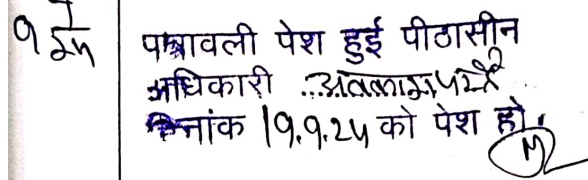 पत्रावली पेश हुई पीठासीन
अधिकारी ..अवकाश पर है
दिनांक 19.9.24 को पेश हो।